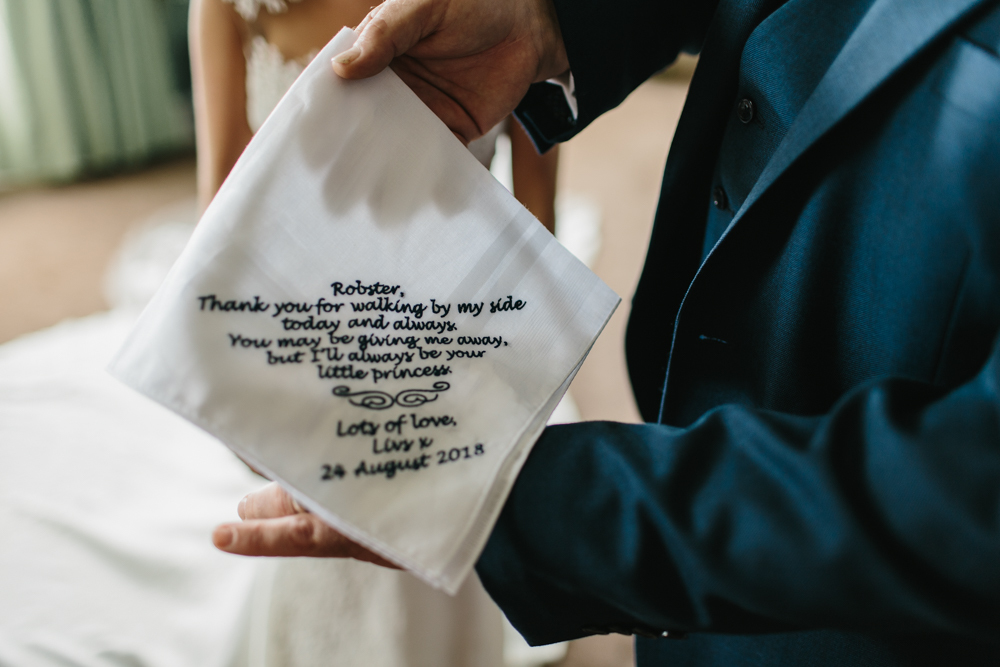 Robster,
Thank you for walking by my side
today and always.
You may be giving me away,
but I'll always be your
little princess.
Lots of love,
Livs x
24 August 2018